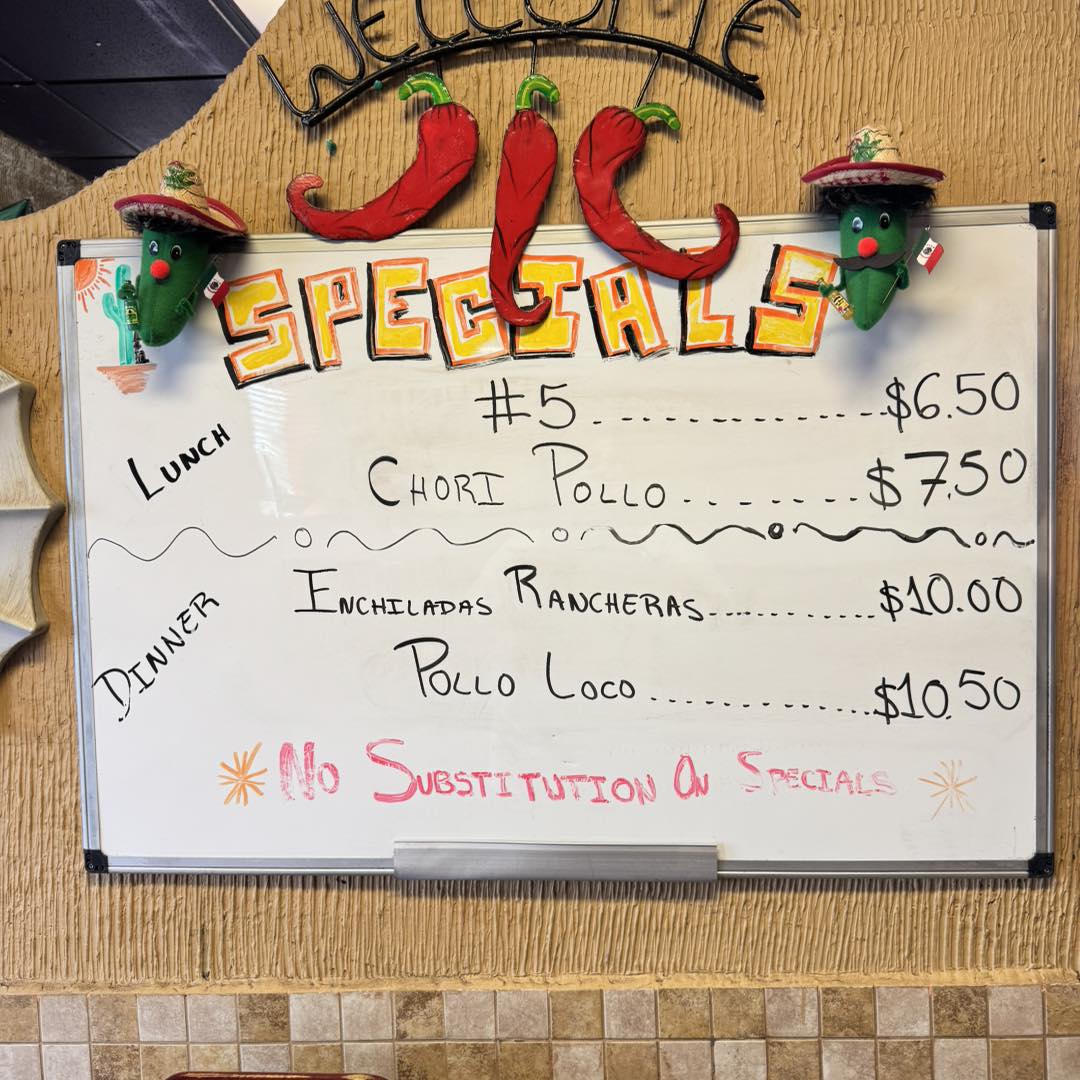 WELCOME
SPECIALS
LUNCH
#5..................$6.50
CHORI POLLO.........$7.50
DINNER
ENCHILADAS RANCHERAS..........$10.00
POLLO LOCO................$10.50
NO SUBSTITUTION ON SPECIALS